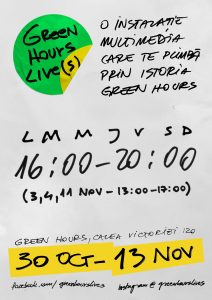 GREEN
HOURS
LIVE(S)
O INSTALAȚIE
MULTIMEDIA
CARE TE PLIMBĂ
PRIN ISTORIA
GREEN HOURS
L M M J V S D
16:00-20:00
(3,4,11 NOV - 13:00-17:00)
GREEN HOURS, CALEA VICTORIEI 120
30 OCT - 13 NOV
facebook.com/greenhourslives
Instagram @greenhourslives